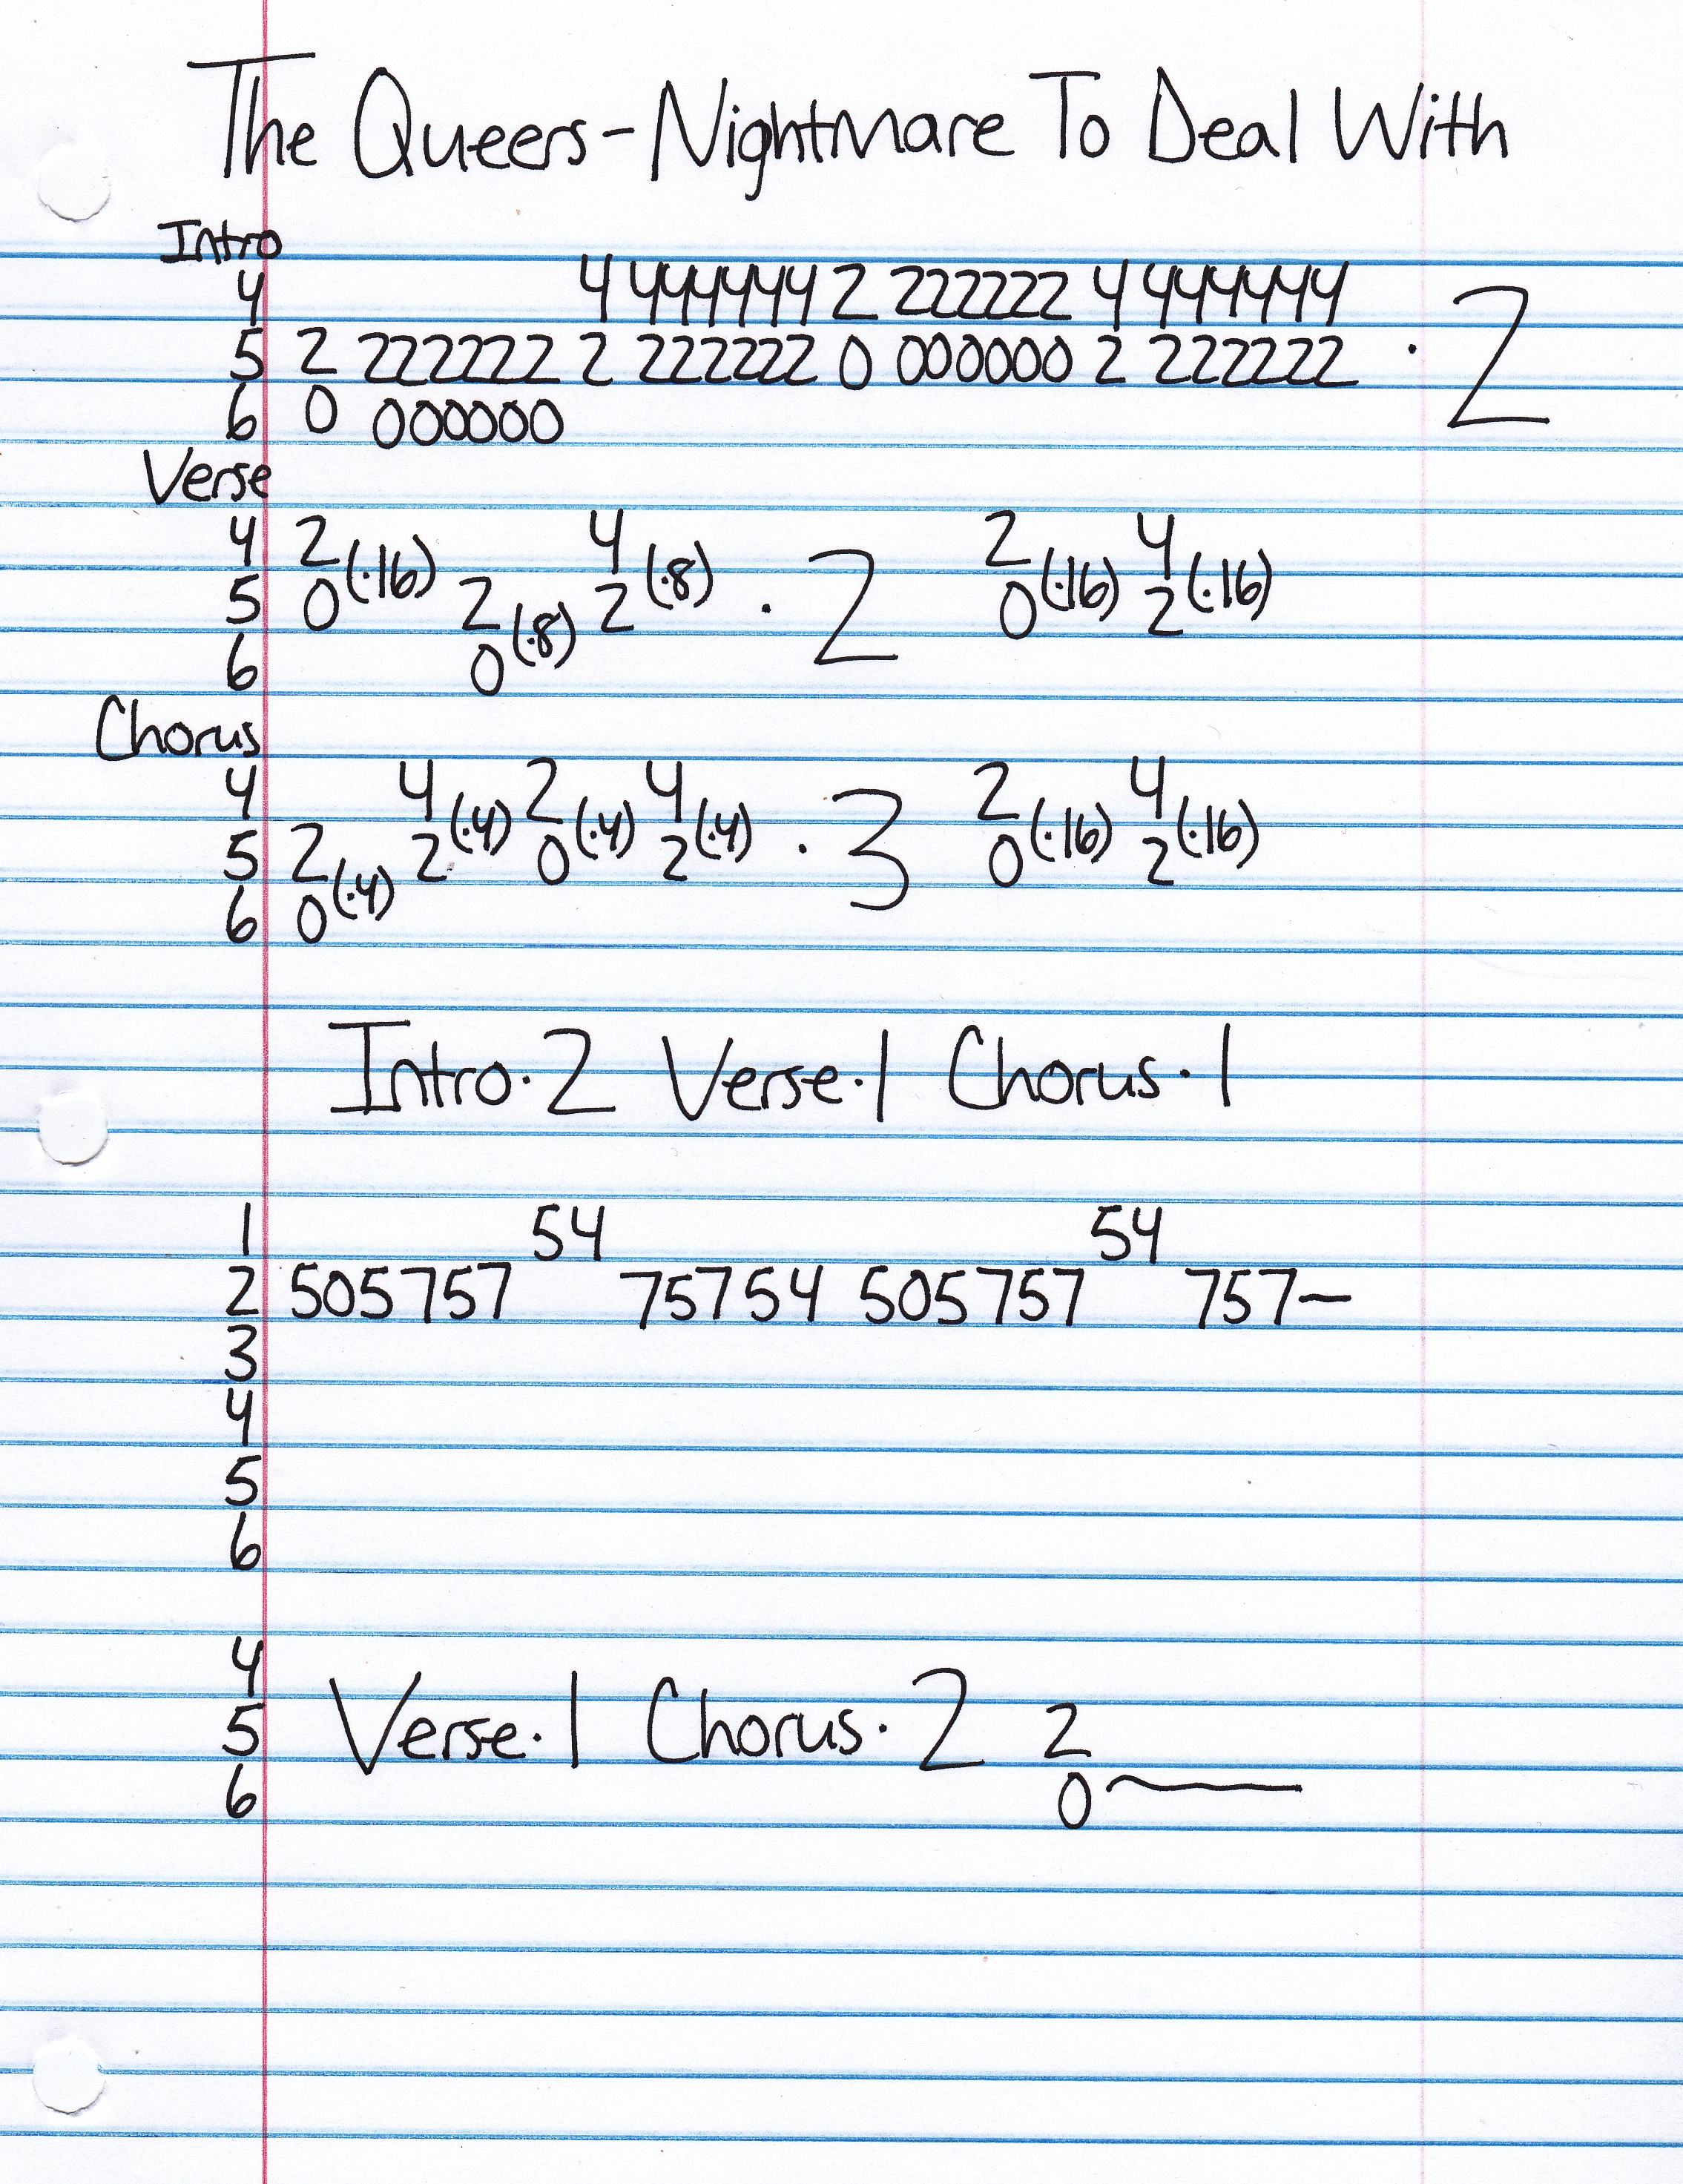 The Queers-Nightmare To Deal With
Intro
4 4 444444 2 222222 4 444444
5 2 222222 2 222222 0 000000 2 222222 · 2
6 0 000000
Verse
4 2 4 2 4
5 0(·16) 2 2(·8) · 2 0(·16) 2(·16)
6 0(·8)
Chorus
4 4 2 4 2 4
5 2 2(·4) 0(·4) 2(·4) · 3 0(·16) 2(·16)
6 0(·4)
Intro·2 Verse·1 Chorus·1
1 54 54
2 505757 75754 505757 757—
3
4
5
6
4
5 Verse·1 Chorus·2 2
6 0—